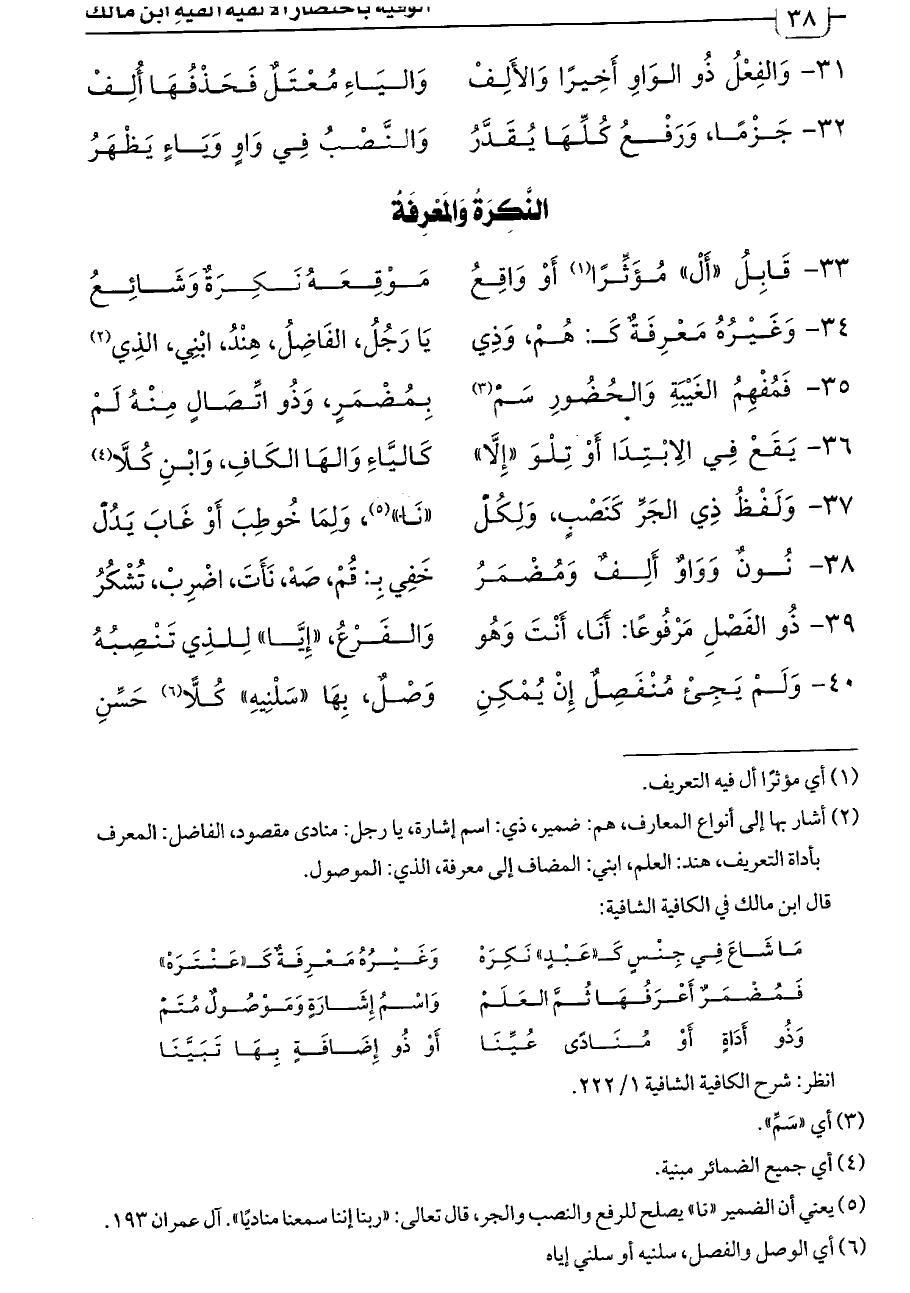 ٣٨ الوفية باختصار الألفية ألفية ابن مالك
٣١- وَالفِعْلُ ذُو الوَاوِ أَخِيرًا وَالأَلِفْ وَاليَاءِ مُعْتَلٌ فَحَذْفُهَا أُلِفْ
٣٢- جَزْمًا، وَرَفْعُ كُلِّهَا يُقَدَّرُ وَالنَّصْبُ فِي وَاوٍ وَيَاءٍ يَظْهَرُ
النَّكِرَةُ وَالمَعْرِفَةُ
٣٣- قَابِلُ «أَلْ» مُؤَثِّرًا(١) أَوْ وَاقِعُ مَوْقِعَهُ نَكِرَةٌ وَشَائِعُ
٣٤- وَغَيْرُهُ مَعْرِفَةٌ كَـ: هُمْ، وَذِي يَا رَجُلُ، الفَاضِلُ، هِنْدُ، ابْنِي، الذِي(٢)
٣٥- فَمُفْهِمُ الغَيْبَةِ وَالحُضُورِ سَمْ(٣) بِمُضْمَرٍ، وَذُو اتِّصَالٍ مِنْهُ لَمْ
٣٦- يَقَعْ فِي الِابْتِدَا أَوْ تِلْوَ «إِلَّا» كَاليَاءِ وَالهَا الكَافِ، وَابْنِ كُلَّا(٤)
٣٧- وَلَفْظُ ذِي الجَرِّ كَنَصْبٍ، وَلِكُلّ «نَا»(٥)، وَلِمَا خُوطِبَ أَوْ غَابَ يَدُلّ
٣٨- نُونٌ وَوَاوٌ أَلِفٌ وَمُضْمَرُ خَفِي بِـ: قُمْ، صَهْ، نَأَتَ، اضْرِبْ، تُشْكُرُ
٣٩- ذُو الفَصْلِ مَرْفُوعًا: أَنَا، أَنْتَ وَهُو وَالفَرْعُ، «إِيَّا» لِلذِي تَنْصِبُهُ
٤٠- وَلَمْ يَجِئْ مُنْفَصِلٌ إِنْ يُمْكِنِ وَصْلٌ، بِهَا «سَلْنِيهِ» كُلًّا(٦) حَسِّنِ
(١) أي مؤثرًا أل فيه التعريف.
(٢) أشار بها إلى أنواع المعارف، هم: ضمير، ذي: اسم إشارة، يا رجل: منادى مقصود، الفاضل: المعرف
بأداة التعريف، هند: العلم، ابني: المضاف إلى معرفة، الذي: الموصول.
قال ابن مالك في الكافية الشافية:
مَا شَاعَ فِي جِنْسٍ كَـ«عَبْدٍ» نَكِرَهْ وَغَيْرُهُ مَعْرِفَةٌ كَـ«عَنْتَرَهْ»
فَمُضْمَرٌ أَعْرَفُهَا ثُمَّ العَلَمْ وَاسْمُ إِشَارَةٍ وَمَوْصُولٌ مُتَمْ
وَذُو أَدَاةٍ أَوْ مُنَادًى عُيِّنَا أَوْ ذُو إِضَافَةٍ بِهَا تَبَيَّنَا
انظر: شرح الكافية الشافية ١/ ٢٢٢.
(٣) أي «سَمِّ».
(٤) أي جميع الضمائر مبنية.
(٥) يعني أن الضمير «نا» يصلح للرفع والنصب والجر، قال تعالى: «ربنا إننا سمعنا مناديًا». آل عمران ١٩٣.
(٦) أي الوصل والفصل، سلنيه أو سلني إياه